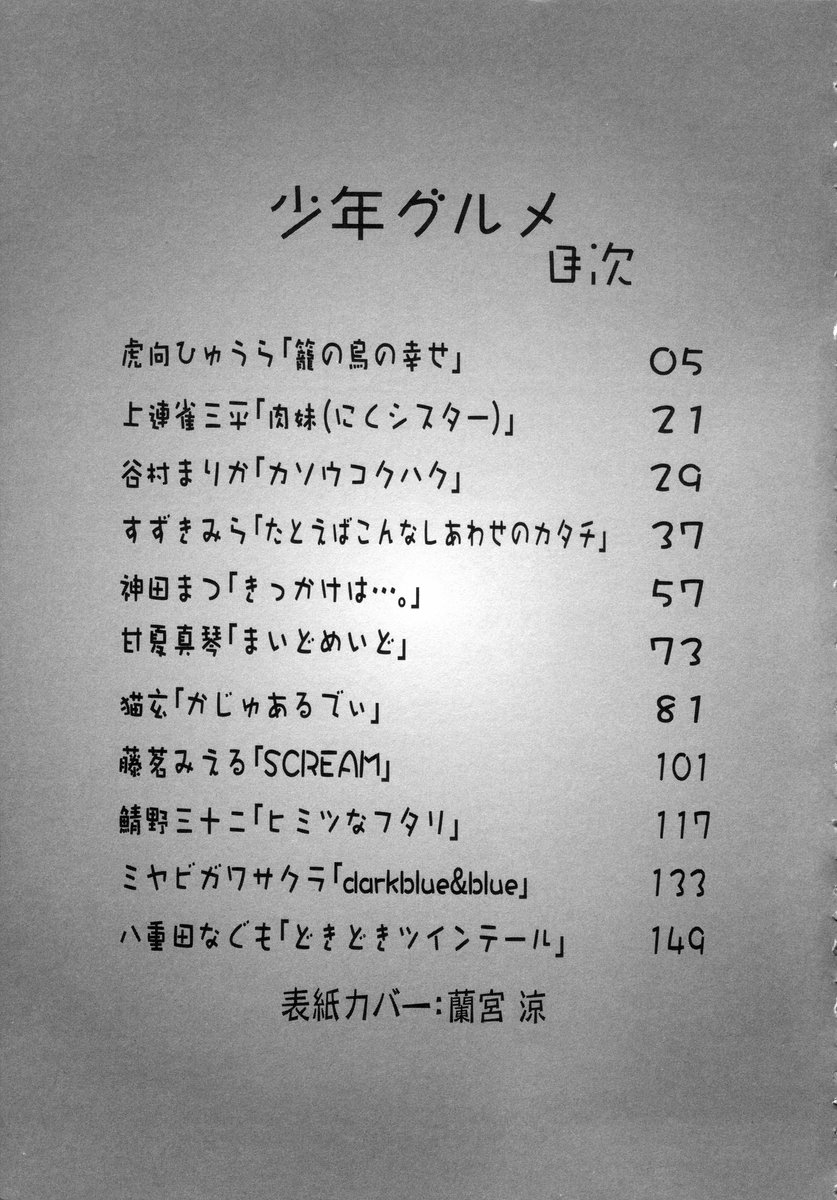 少年グルメ
目次
虎向ひゅうら「籠の鳥の幸せ」 05
上連雀三平「肉妹(にくシスター)」 21
谷村まりか「カソウコクハク」 29
すずきみら「たとえばこんなしあわせのカタチ」 37
神田まつ「きっかけは…。」 57
甘夏真琴「まいどめいど」 73
猫玄「かじゅあるでぃ」 81
藤茗みえる「SCREAM」 101
鯖野三十二「ヒミツなフタリ」 117
ミヤビガワサクラ「darkblue&blue」 133
八重田なぐも「どきどきツインテール」 149
表紙カバー:蘭宮 涼